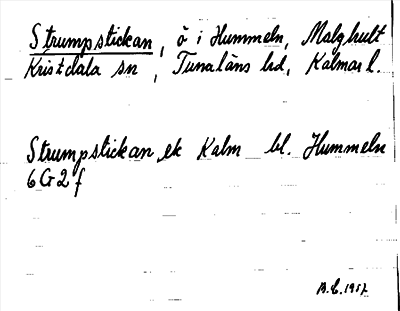 Strumpstickan, ö i Hummeln, Malghult
Kristdala sn, Tunaläns hd, Kalmar l.
Strumpstickan ek Kalm bl. Hummeln
6G2f
B.E. 1957